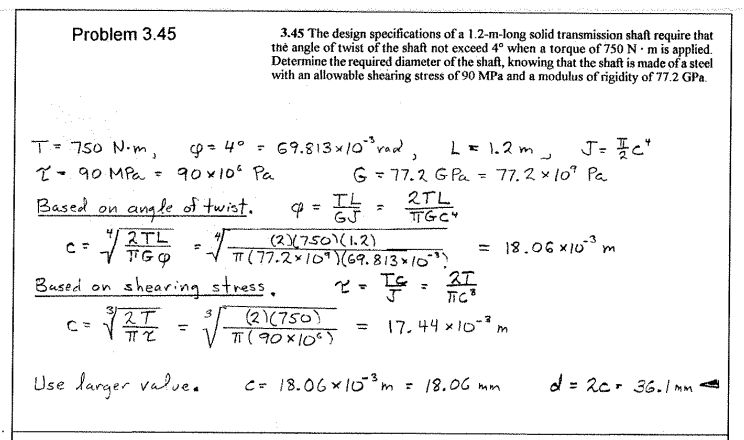 Problem 3.45
3.45 The design specifications of a 1.2-m-long solid transmission shaft require that
the angle of twist of the shaft not exceed 4° when a torque of 750 N · m is applied.
Determine the required diameter of the shaft, knowing that the shaft is made of a steel
with an allowable shearing stress of 90 MPa and a modulus of rigidity of 77.2 GPa.
T = 750 N·m, φ = 4° = 69.813×10⁻³ rad, L = 1.2 m, J = π/2 c⁴
τ = 90 MPa = 90×10⁶ Pa G = 77.2 GPa = 77.2×10⁹ Pa
Based on angle of twist. φ = TL/GJ = 2TL/πGc⁴
c = ⁴√(2TL/πGφ) = ⁴√((2)(750)(1.2)/π(77.2×10⁹)(69.813×10⁻³)) = 18.06×10⁻³ m
Based on shearing stress. τ = Tc/J = 2T/πc³
c = ³√(2T/πτ) = ³√((2)(750)/π(90×10⁶)) = 17.44×10⁻³ m
Use larger value. c = 18.06×10⁻³ m = 18.06 mm d = 2c = 36.1 mm